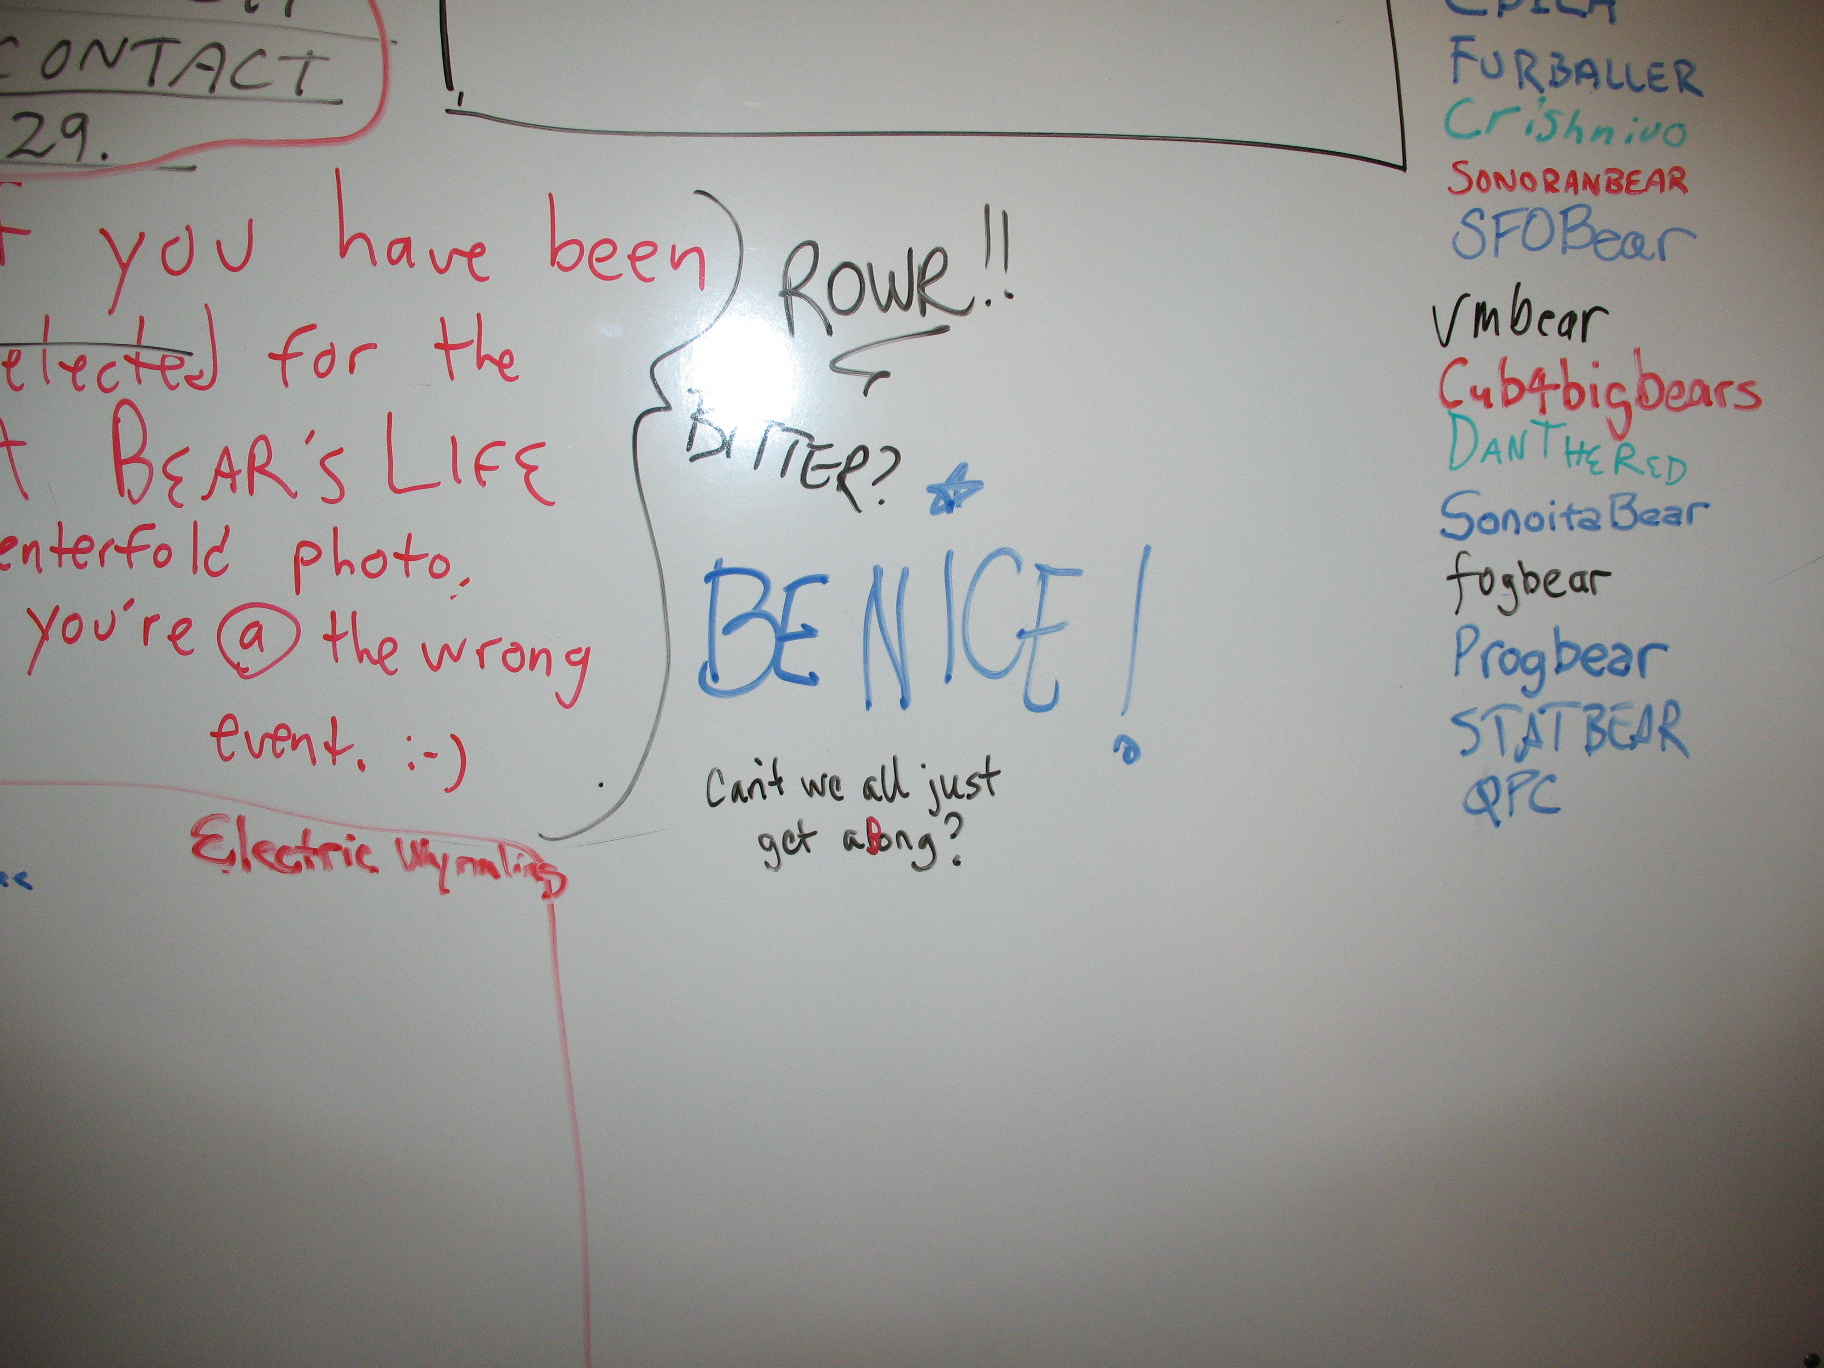 CONTACT
29.
you have been
elected for the
BEAR'S LIFE
enterfold photo.
you're @ the wrong
event. :-)
Electric
ROWR!!
BITTER?
BE NICE!
Can't we all just
get along?
FURBALLER
Crishnivo
SONORANBEAR
SFOBear
vmbear
Cub4bigbears
DANTHERED
SonoitaBear
fogbear
Progbear
STATBEAR
QPC